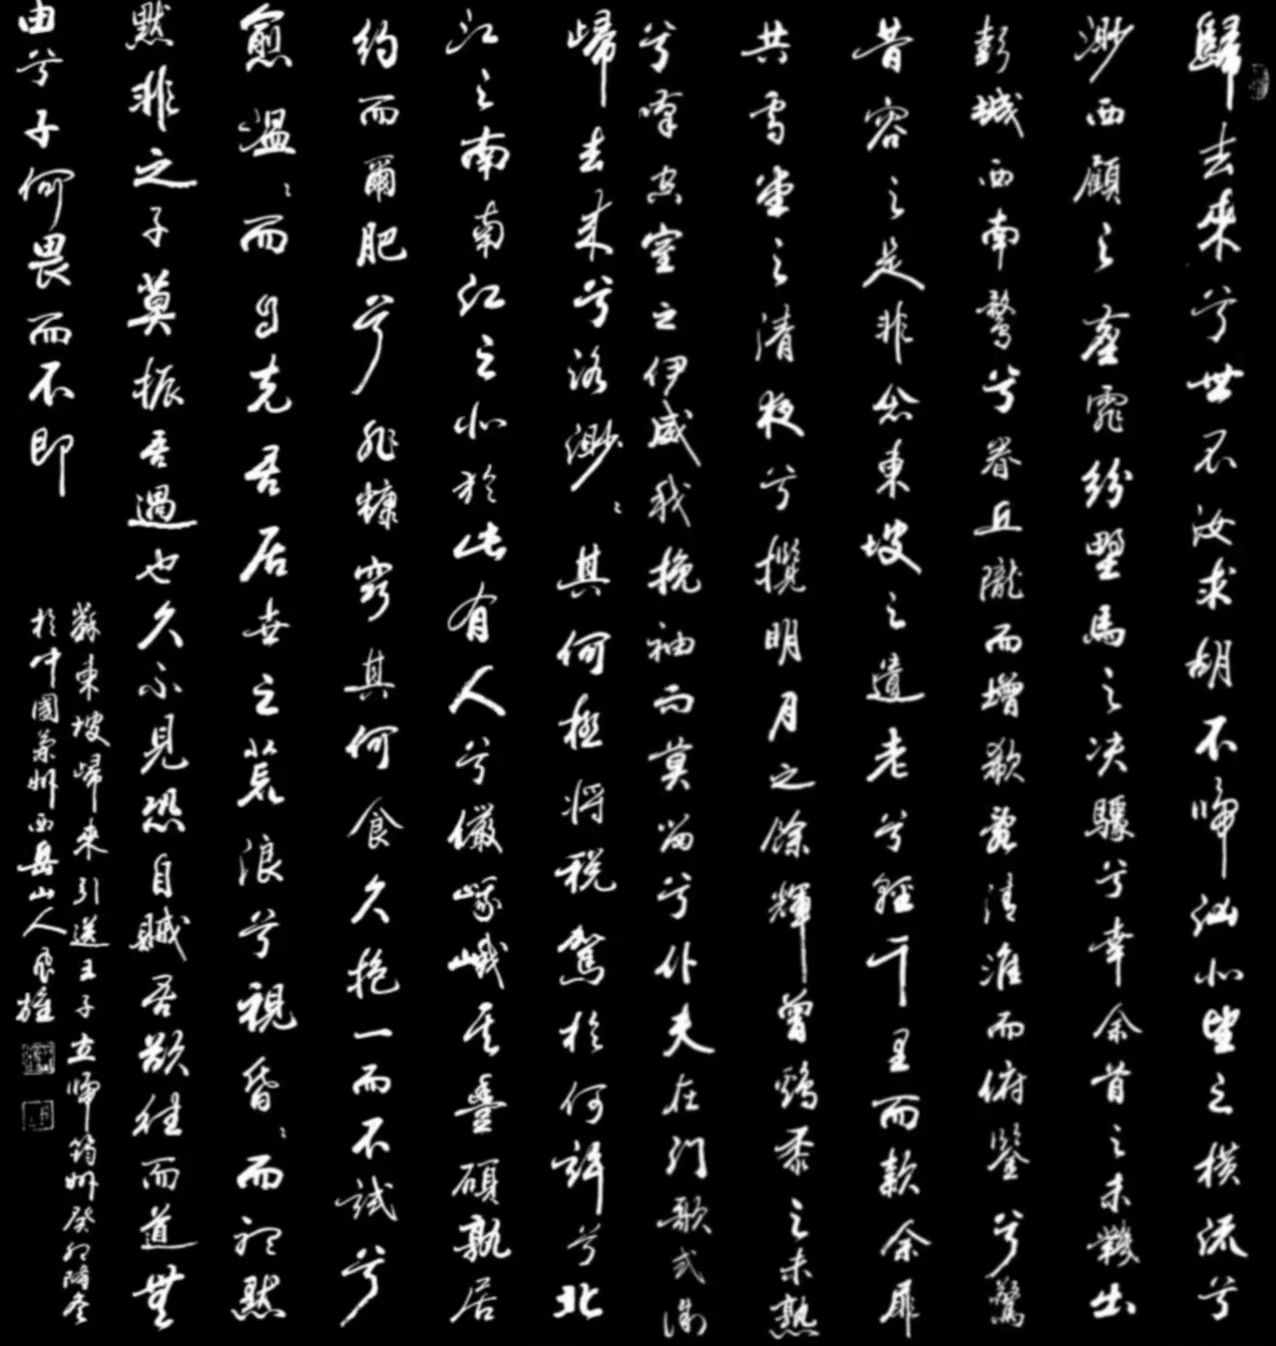 歸去來兮世不汝求胡不歸汹北望之橫流兮
渺西顧之塵霏紛野馬之决驟兮幸余首之未鞿出
彭城西南騖兮眷丘隴而增欷亂清淮而俯鑒兮驚
昔容之是非念東坡之遺老兮輕千里而款余扉
共雪堂之清夜兮攬明月之餘輝曾鷄黍之未熟
兮嘆空室之伊威我挽袖而莫留兮仆夫在門歌式微
歸去來兮路渺渺其何極將稅駕於何許兮北
江之南南江之北於此有人兮儼峨峨其豐碩孰居
約而爾肥兮非糠窮其何食久抱一而不試兮
愈溫溫而自克吾居世之荒浪兮視昏昏而視默
默非之子莫振吾過也久不見恐自賊吾欲往而道無
由兮子何畏而不即
蘇東坡歸來引送王子立歸筠州癸
於中國 州西岳山人